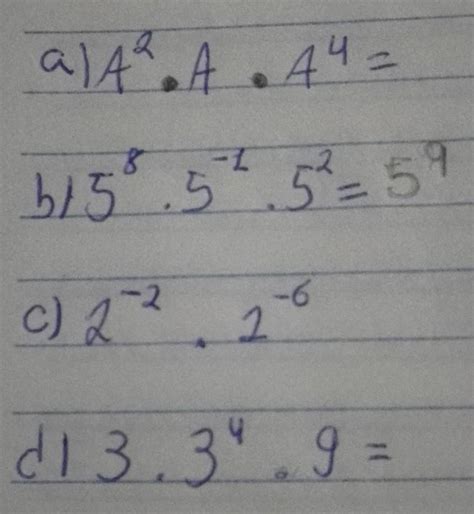 a) A² . A . A⁴ =
b) 5⁸ . 5⁻¹ . 5² = 5⁹
c) 2⁻² . 2⁻⁶
d) 3 . 3⁴ . 9 =